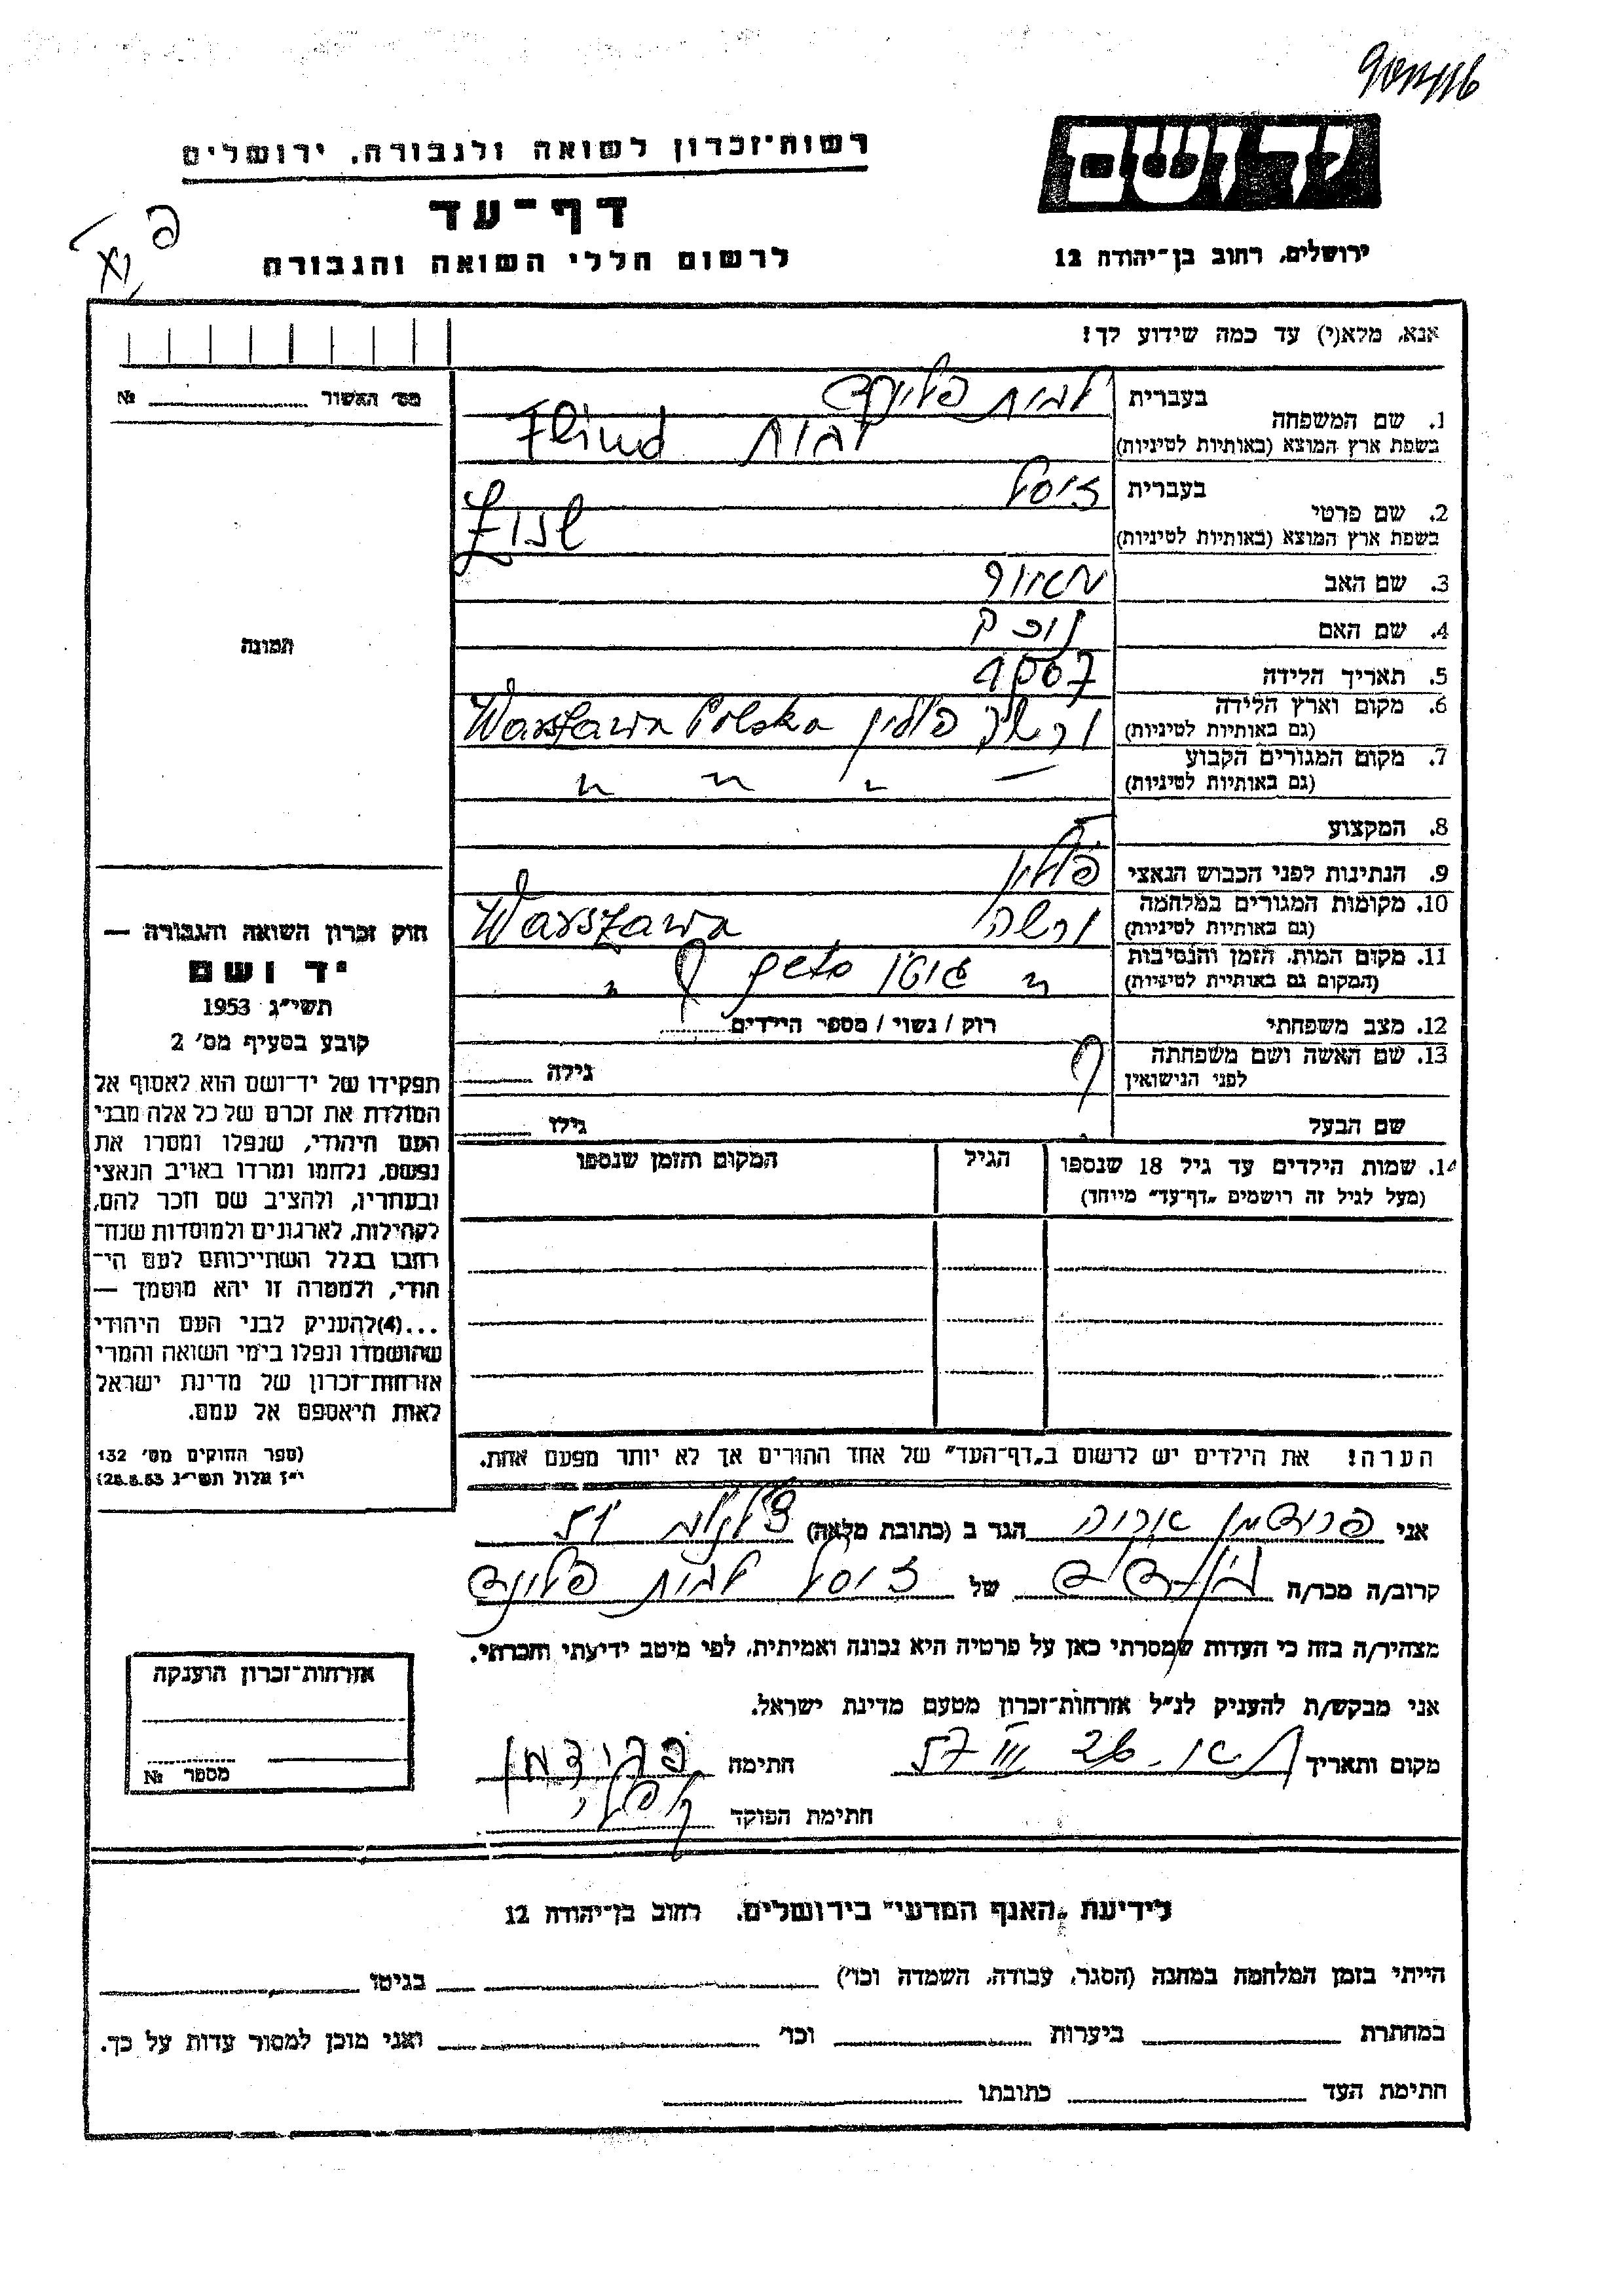 יד ושם
רשות-זכרון לשואה ולגבורה, ירושלים
דף-עד
לרשום חללי השואה והגבורה
ירושלים, רחוב בן-יהודה 12
אנא, מלא(י) עד כמה שידוע לך!
מס' האשור №
1. שם המשפחה
בעברית לבית פלינד
בשפת ארץ המוצא (באותיות לטיניות) לבית Flind
2. שם פרטי
בעברית זיסל
בשפת ארץ המוצא (באותיות לטיניות)
3. שם האב
4. שם האם
5. תאריך הלידה
6. מקום וארץ הלידה
(גם באותיות לטיניות) ורשה פולין Warszawa Polska
7. מקום המגורים הקבוע
(גם באותיות לטיניות) " " " "
8. המקצוע
9. הנתינות לפני הכבוש הנאצי פולין
10. מקומות המגורים במלחמה
(גם באותיות לטיניות) ורשה Warszawa
11. מקום המות, הזמן והנסיבות
(המקום גם באותיות לטיניות) " גיטו "
12. מצב משפחתי רוק / נשוי / מספר הילדים
13. שם האשה ושם משפחתה
לפני הנישואין ? גילה
שם הבעל גילו
14. שמות הילדים עד גיל 18 שנספו
(מעל לגיל זה רושמים "דף-עד" מייוחד)
הגיל
המקום והזמן שנספו
הערה! את הילדים יש לרשום ב"דף-העד" של אחד ההורים אך לא יותר מפעם אחת.
תמונה
חוק זכרון השואה והגבורה —
יד ושם
תשי"ג 1953
קובע בסעיף מס' 2
תפקידו של יד-ושם הוא לאסוף אל
המולדת את זכרם של כל אלה מבני
העם היהודי, שנפלו ומסרו את
נפשם, נלחמו ומרדו באויב הנאצי
ובעוזריו, ולהציב שם וזכר להם,
לקהילות, לארגונים ולמוסדות שנח-
רבו בגלל השתייכותם לעם הי-
הודי, ולמטרה זו יהא מוסמך —
...(4)להעניק לבני העם היהודי
שהושמדו ונפלו בימי השואה והמרי
אזרחות-זכרון של מדינת ישראל
לאות היאספם אל עמם.
(ספר החוקים מס' 132
י"ז אלול תשי"ג 28.8.53)
אני פרידמן אריה הגר ב (כתובת מלאה)
קרוב/ה מכר/ה של זיסל לבית פלינד
מצהיר/ה בזה כי העדות שמסרתי כאן על פרטיה היא נכונה ואמיתית, לפי מיטב ידיעתי והכרתי.
אני מבקש/ת להעניק לנ"ל אזרחות-זכרון מטעם מדינת ישראל.
מקום ותאריך ת"א. 26 III 57 חתימה פרידמן
חתימת הפוקד
אזרחות-זכרון הוענקה
מספר №
לידיעת "האגף המדעי" בירושלים, רחוב בן-יהודה 12
הייתי בזמן המלחמה במחנה (הסגר, עבודה, השמדה וכו') בגיטו
במחתרת ביערות וכו' ואני מוכן למסור עדות על כך.
חתימת העד כתובתו